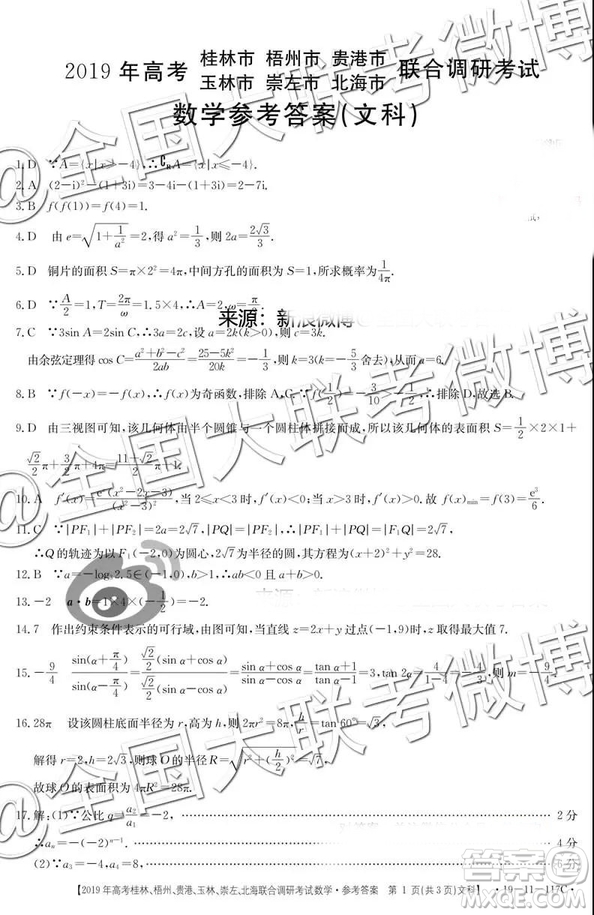 2019 年高考 桂林市 梧州市 贵港市 玉林市 崇左市 北海市 联合调研考试
数学参考答案(文科)
1. D ∵A={x|x>-4},∴∁RA={x|x≤-4}.
2. A (2-i)²-(1+3i)=3-4i-(1+3i)=2-7i.
3. B f(f(1))=f(4)=1.
4. D 由 e=√(1+1/a²)=2,得 a²=1/3,则 2a=2√3/3.
5. D 铜片的面积 S=π×2²=4π,中间方孔的面积为 S=1,所求概率为 1/4π.
6. D ∵A/2=1,T=2π/ω=1.5×4,∴A=2,ω=π/
来源：新浪微博
7. C ∵3sin A=2sin C,∴3a=2c,设 a=2k(k>0),则 c=3k.
由余弦定理得 cos C=(a²+b²-c²)/2ab=(25-5k²)/20k=-1/3,则 k=3(k=-5/3舍去),从而 a=6.
8. B ∵f(-x)=-f(x),∴f(x)为奇函数,排除 A,C.∵f(-)=-3/10>-1,排除 D.故选 B.
9. D 由三视图可知,该几何体由半个圆锥与一个圆柱体拼接而成,所以该几何体的表面积 S=1/2×2×1+
√2/2π+3/2π+4π=1+(11+√2)/2π.
10. A f′(x)=eˣ(x²-2x-3)/(x²-3)²,当 2≤x<3 时,f′(x)<0;当 x>3 时,f′(x)>0.故 f(x)min=f(3)=e³/6.
11. C ∵|PF₁|+|PF₂|=2a=2√7,|PQ|=|PF₂|,∴|PF₁|+|PQ|=|F₁Q|=2√7,
∴Q 的轨迹为以 F₁(-2,0)为圆心,2√7为半径的圆,其方程为(x+2)²+y²=28.
12. B ∵a=-log₂2.5∈(-1,0),b>1,∴ab<0,a+b>0.
13. -2 a·b=1×4×(-)=-2.
14. 7 作出约束条件表示的可行域,由图可知,当直线 z=2x+y 过点(-1,9)时,z 取得最大值 7.
15. -9/4 sin(α+π/4)/sin(α-π/4)=√2/2(sin α+cos α)/√2/2(sin α-cos α)=(sin α+cos α)/(sin α-cos α)=(tan α+1)/(tan α-1)=3,
16. 28π 设该圆柱底面半径为 r,高为 h,则 2πr²=8π,h/r=tan 60°=√3,
解得 r=2,h=2√3,则球 O 的半径 R=√(r²+(h/2)²)=√7,
故球 O 的表面积为 4πR²=28π.
17. 解:(1)∵公比 q=a₂/a₁=-2, 2 分
∴aₙ=-(-2)ⁿ⁻¹. 4 分
(2)∵a₃=-4,a₄=8,
【2019 年高考桂林、梧州、贵港、玉林、崇左、北海联合调研考试数学·参考答案 第 1 页(共 3 页)文科】 ·19-11-117C·
全国大联考微博
全国大联考微博